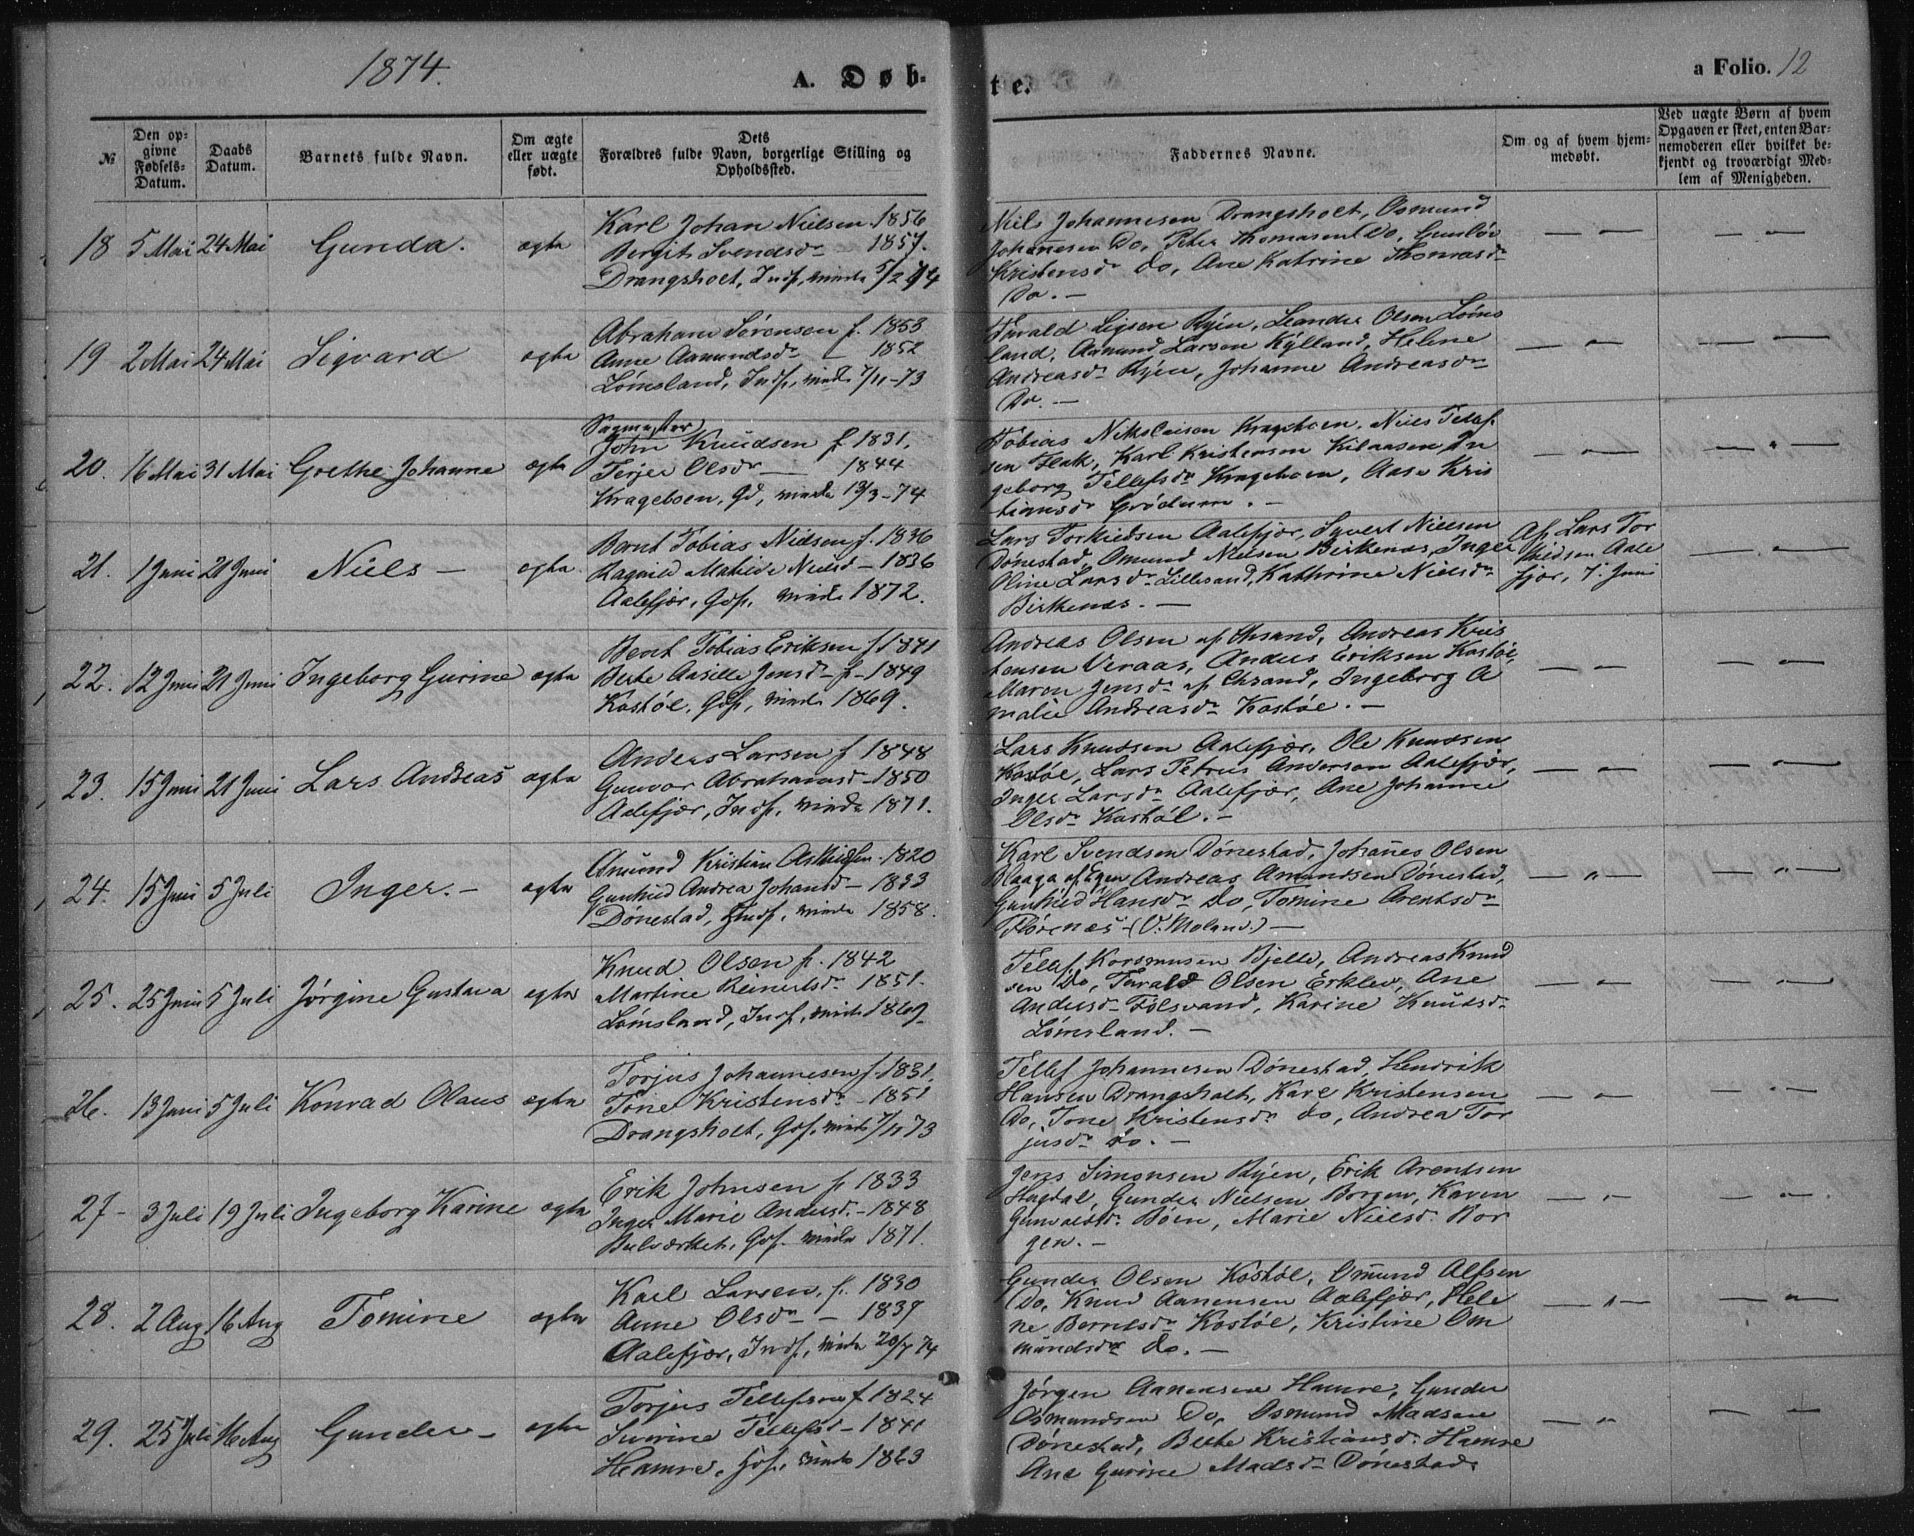 1874.
A. Døb-
te.
a Folio. 12
№
Den op-
givne
Fødsels-
Datum.
Daabs
Datum.
Barnets fulde Navn.
Om ægte
eller uægte
født.
Dets
Forældres fulde Navn, borgerlige Stilling og
Opholdssted.
Faddernes Navne.
Om og af hvem hjem-
medøbt.
Ved uægte Børn af hvem
Opgaven er skeet, enten Bar-
nemoderen eller hvilket be-
kjendt og troværdigt Med-
lem af Menigheden.
18 5 Mai 24 Mai Gunda. ægte
Karl Johan Nielsen 1856
Bergit Svendsdr 1857.
Drangsholt, Indf, viede 5/2 74
Niels Johannesen Drangsholt, Osmund
Johannesen Do, Peter Thomasen Do, Gunløv
Kristensdr do, Ane Katrine Thomasdr
Do. —
19 2 Mai 24 Mai Sigvard ægte
Abraham Sørensen f. 1853
Anne Aamundsdr — 1852
Lømsland, Indf, viede 7/11-73
Tarald Ligsen Ryen, Leander Olsen Løms
land, Aamund Larsen Kylland, Helene
Andreasdr Ryen, Johanne Andreasdr
Do. —
20. 16 Mai 31 Mai Grethe Johanne ægte
Sagmester
John Knudsen f 1831.
Terjer Olsdr — 1844
Krageboen, Gd, viede 13/3-74
Tobias Nikolaisen Krageboen, Niels Tellef
sen Flak, Karl Kristensen Kilaasen, In
geborg Tellefsdr Krageboen, Aase Kris
tiansdr Grødum. —
21. 1 Juni 21 Juni Niels — ægte.
Bernt Tobias Nielsen f. 1836
Ragnild Mathilde Nielsd — 1836
Aalefjær, Gdf, viede 1872.
Lars Torkildsen Aalefjær, Syvert Nielsen
Dønestad, Omund Nielsen Birkenæs, Inger
Oline Larsdr Lillesand, Kathrine Nielsdr
Birkenæs. —
Af Lars Tor
kildsen Aale
fjær, 7. Juni
22. 12 Juni 21 Juni Ingeborg Gurine ægte
Bernt Tobias Eriksen f 1841
Berte Aasille Jensdr f 1849
Kostøl, Gdf, viede 1869.
Andreas Olsen af Chrsand, Andreas Kris
tensen Veraas, Anders Eriksen Kostøl,
Maren Jensdr af Chrsand, Ingeborg A
malie Andreasdr Kostøl. —
23. 15 Juni 21 Juni Lars Andreas ægte
Anders Larsen f 1848
Gunvor Abrahamsd — 1850
Aalefjær, Indf, viede 1871.
Lars Knudsen Aalefjær, Ole Knudsen
Kostøl, Lars Petrus Andersen Aalefjær,
Inger Larsdr Aalefjær, Ane Johanne
Olsdr Kostøl. —
24. 15 Juni 5 Juli Inger. — ægte
Amund Kristian Askildsn. 1820
Gunhild Andrea Johansd — 1833
Dønestad, Indf, viede 1858.
Karl Svendsen Dønestad, Johanes Olsen
Blaaga af Egen Andreas Amundsen Dønestad,
Gunhild Hansdr do, Tomine Arentsdr
Florenæs (V. Moland.) —
25. 25 Juni 5 Juli Jørgine Gustava ægte
Knud Olsen f. 1842
Martine Reinertsdr 1851.
Lømsland, Indf, viede 1869
Tellef Korsmusen Bjelle, Andreas Knud
sen Do, Tarald Olsen Erklev, Ane
Andersdr Følsvand, Karine Knudsdr
Lømsland. —
26. 13 Juni 5 Juli Konrad Olaus ægte
Torjus Johannesen f. 1831.
Tone Kristensdr — 1851
Drangsholt, Gdf, viede 7/11 73
Tellef Johannesen Dønestad, Hendrik
Hansen Drangsholt, Karl Kristensen
Do, Tone Kristensdr do, Andrea Tor
jusdr do. —
27 — 3 Juli 19 Juli Ingeborg Karine ægte
Erik Johnsen f 1833
Inger Marie Andersd. — 1848
Bulværket, Gdf. viede 1871.
Jens Simonsen Ryen, Erik Arentsen
Hagdal, Gunder Nielsen Borgen, Karen
Gunvaldsdr Bøen, Marie Nielsd. Bor
gen. —
28. 2 Aug 16 Aug Tomine ægte
Karl Larsen, f. 1830
Anne Olsdr — 1837
Aalefjær, Indf, viede 20/7 74
Gunder Olsen Kostøl, Omund Alfsen
Do, Knud Aanensen Aalefjær, Hele
ne Berntsdr Kostøl, Kristine Om
mundsdr do. —
29. 25 Juli 16 Aug Gunder — ægte
Torjus Tellefsen f 1824
Surine Tellefsd — 1841
Hamre, Gdf, viede 1863
Jørgen Aanensen Hamre, Gunder
Osmundsen Do, Osmund Madsen
Dønestad, Berte Kristiansd. Hamre
Ane Gurine Madsdr Dønestad.